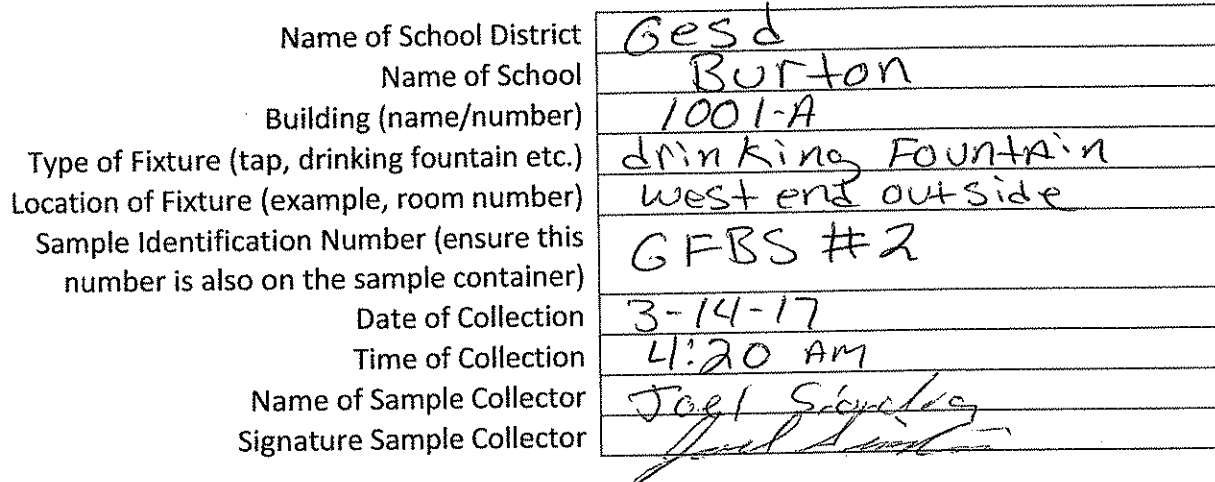 Name of School District Gesd
Name of School Burton
Building (name/number) 1001-A
Type of Fixture (tap, drinking fountain etc.) drinking Fountain
Location of Fixture (example, room number) west end outside
Sample Identification Number (ensure this
number is also on the sample container) GFBS #2
Date of Collection 3-14-17
Time of Collection 4:20 AM
Name of Sample Collector Joel
Signature Sample Collector